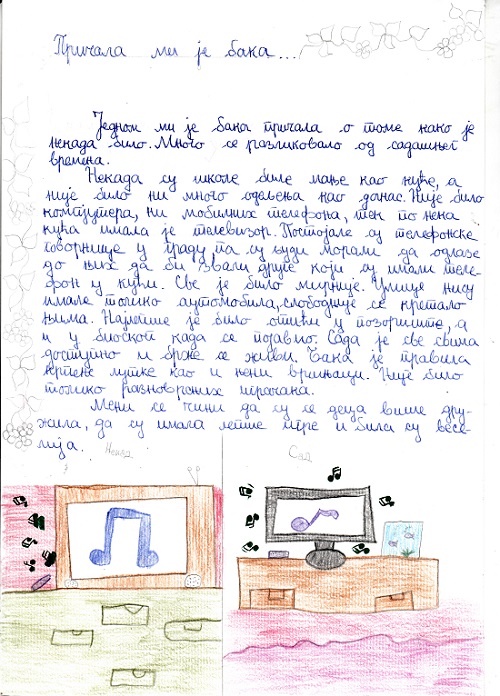 Причала ми је бака...
Једном ми је бака причала о томе како је
некада било. Много се разликовало од садашњег
времена.
Некада су школе биле мање као куће, а
није било ни много одељења као данас. Није било
компјутера, ни мобилних телефона, тек по нека
кућа имала је телевизор. Постојале су телефонске
говорнице у граду па су људи морали да одлазе
до њих да би звали друге који су имали теле-
фон у кући. Све је било мирније. Улице нису
имале толико аутомобила, слободније се кретало
њима. Најлепше је било отићи у позориште, а
и у биоскоп када се појавио. Сада је све свима
доступно и брже се живи. Бака је правила
крпене лутке као и њени вршњаци. Није било
толико разноврсних играчака.
Мени се чини да су се деца више дру-
жила, да су имала лепше игре и била су весе-
лија.
Некад
Сад